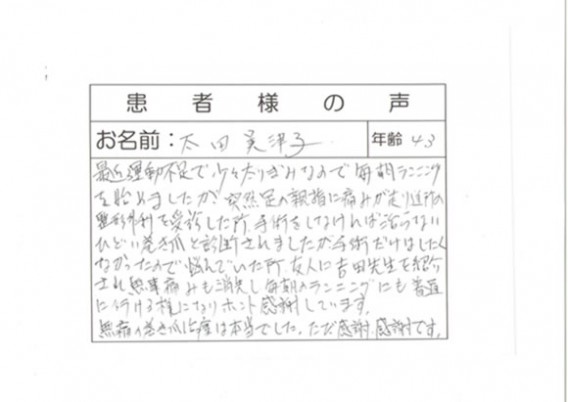 患者様の声
お名前:太田美津子 年齢 43
最近運動不足で少々太りぎみなので毎朝ランニング
を始めましたが、突然足の親指に痛みが走り近所の
整形外科を受診した所、手術をしなければ治らない
ひどい巻き爪と診断されましたが手術だけはしたく
なかったので悩んでいた所、友人に吉田先生を紹介
され無事痛みも消失し毎朝のランニングにも普通
に行ける様になりホント感謝しています。
無痛の巻き爪治療は本当でした。ただ感謝、感謝です。